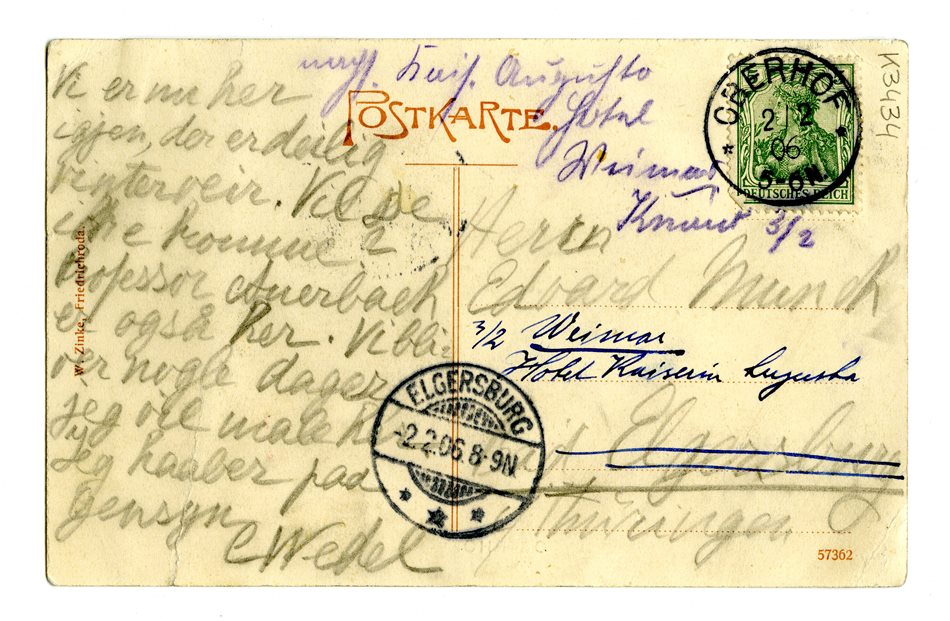 Vi er nu her
igjen, der er deilig
Vinterveir. Vil De
ikke komme?
Professor Auerbach
er også her. Vi bli-
ver nogle dager
Jeg vil male her
Jeg haaber paa
Gensyn
C Wedel
W. Zinke, Friedrichroda.
nach Kais. Augusta
Hotel
Weimar
3/2
POSTKARTE.
K3434
OBERHOF
2 2
06
DEUTSCHES REICH
Herrn
Edvard Munch
3/2 Weimar
Hotel Kaiserin Augusta
Elgersburg
Thüringen
ELGERSBURG
-2.2.06 8-9N
57362